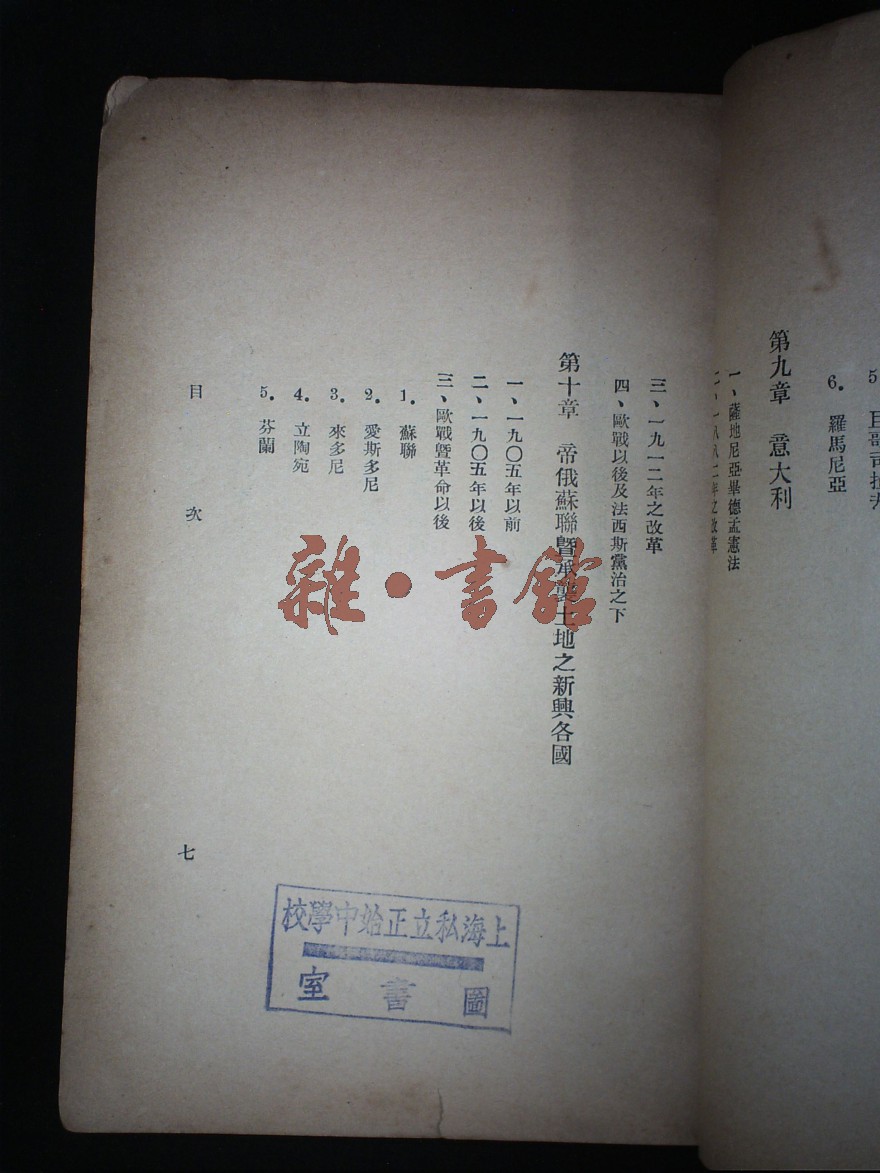 6. 羅馬尼亞
第九章 意大利
一、薩地尼亞畢德孟憲法
二、一八八二年之改革
三、一九一二年之改革
四、歐戰以後及法西斯黨治之下
第十章 帝俄蘇聯暨承襲土地之新興各國
一、一九〇五年以前
二、一九〇五年以後
三、歐戰暨革命以後
1. 蘇聯
2. 愛斯多尼
3. 來多尼
4. 立陶宛
5. 芬蘭
目次
七
雜·書館
上海私立正始中學校
圖書室